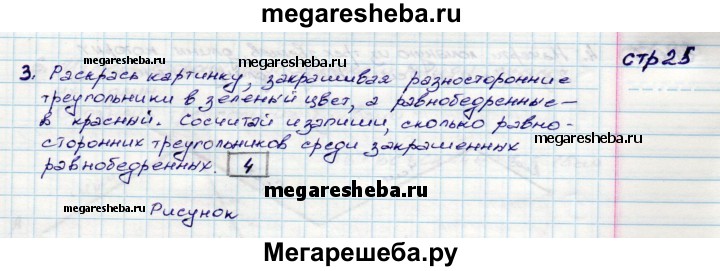 megaresheba.ru
стр 25
3. Раскрась картинку, закрашивая разносторонние
треугольники в зелёный цвет, а равнобедренные –
в красный. Сосчитай и запиши, сколько равно-
сторонних треугольников среди закрашенных
равнобедренных. 4
megaresheba.ru
megaresheba.ru
Рисунок
Мегарешеба.ру